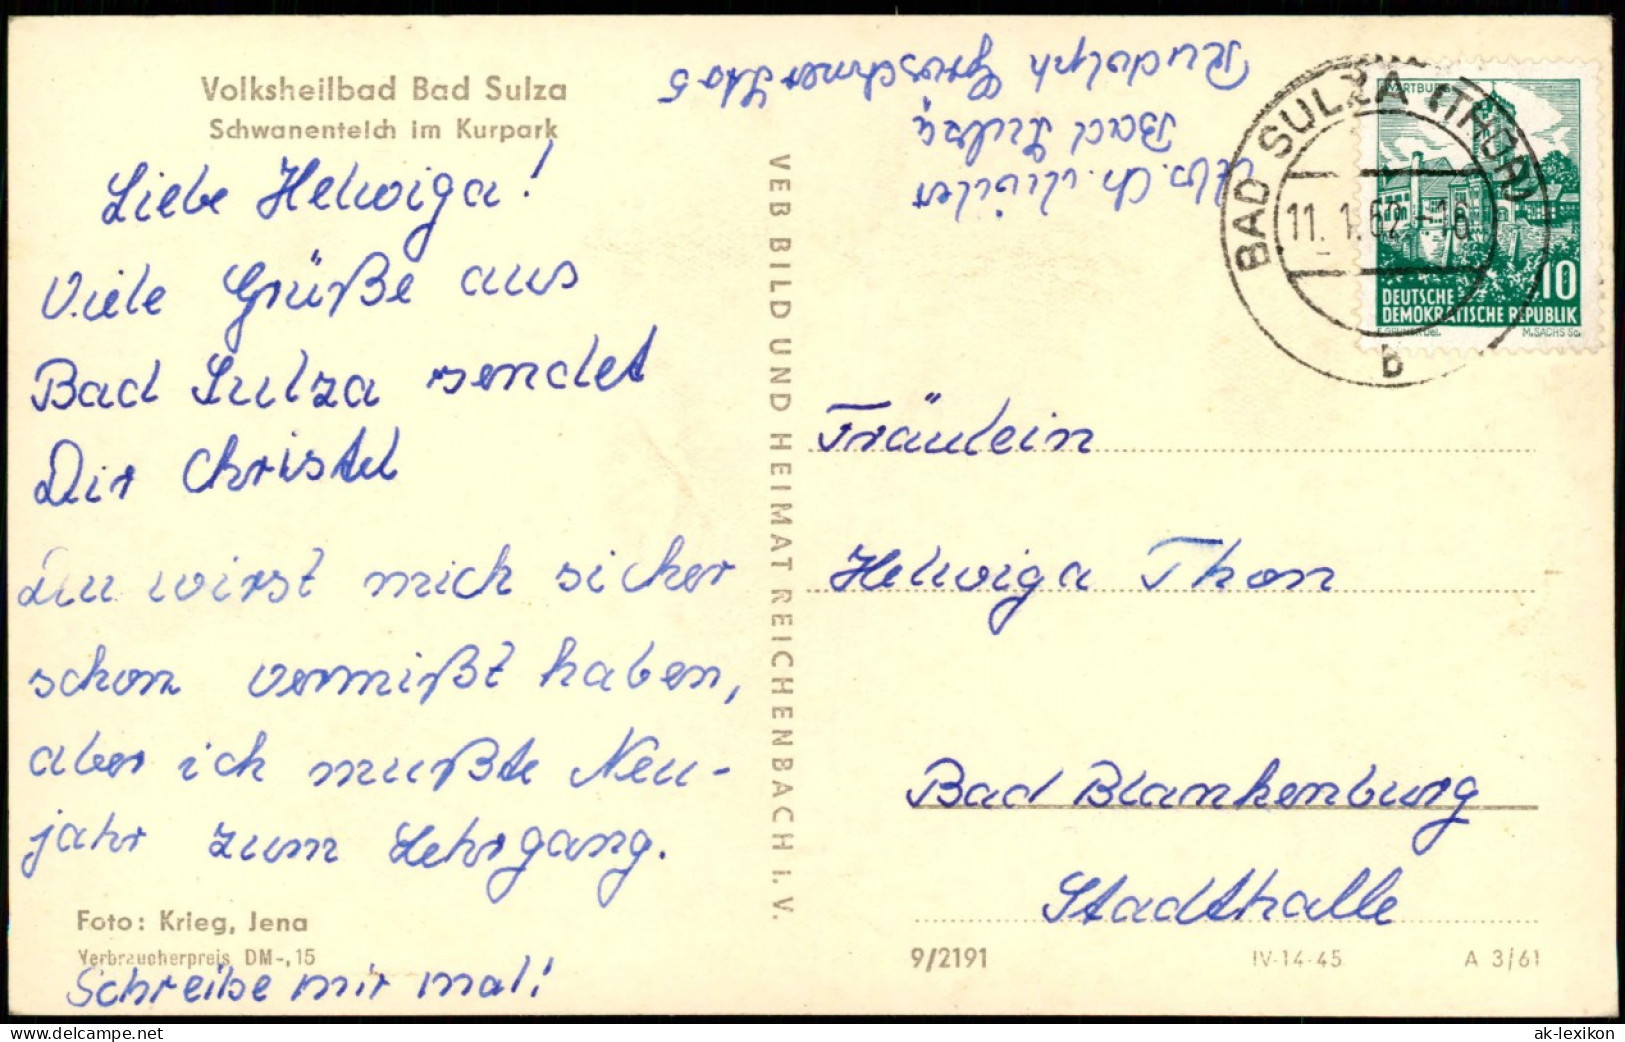 Volksheilbad Bad Sulza
Schwanenteich im Kurpark
Liebe Helwiga!
Viele Grüße aus
Bad Sulza sendet
Dir Christel
Du wirst mich sicher
schon vermißt haben,
aber ich mußte Neu-
jahr zum Lehrgang.
Foto: Krieg, Jena
Verbraucherpreis DM -,15
Schreibe mir mal!
VEB BILD UND HEIMAT REICHENBACH I. V.
Abs. Ch.
Bad Sulza
Rudolph
BAD SULZA (THÜR)
11. 1. 62. -16
b
WARTBURG
10
DEUTSCHE
DEMOKRATISCHE REPUBLIK
M. SACHS Sc.
Fräulein
Helwiga Thon
Bad Blankenburg
Stadthalle
9/2191
IV-14-45
A 3/61
ak-ansichtskarten.de
ak-lexikon